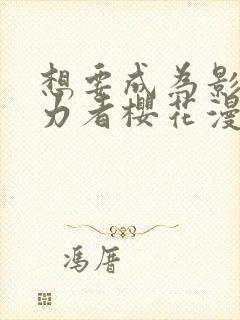 想要成为影
力者樱花漫
冯厝